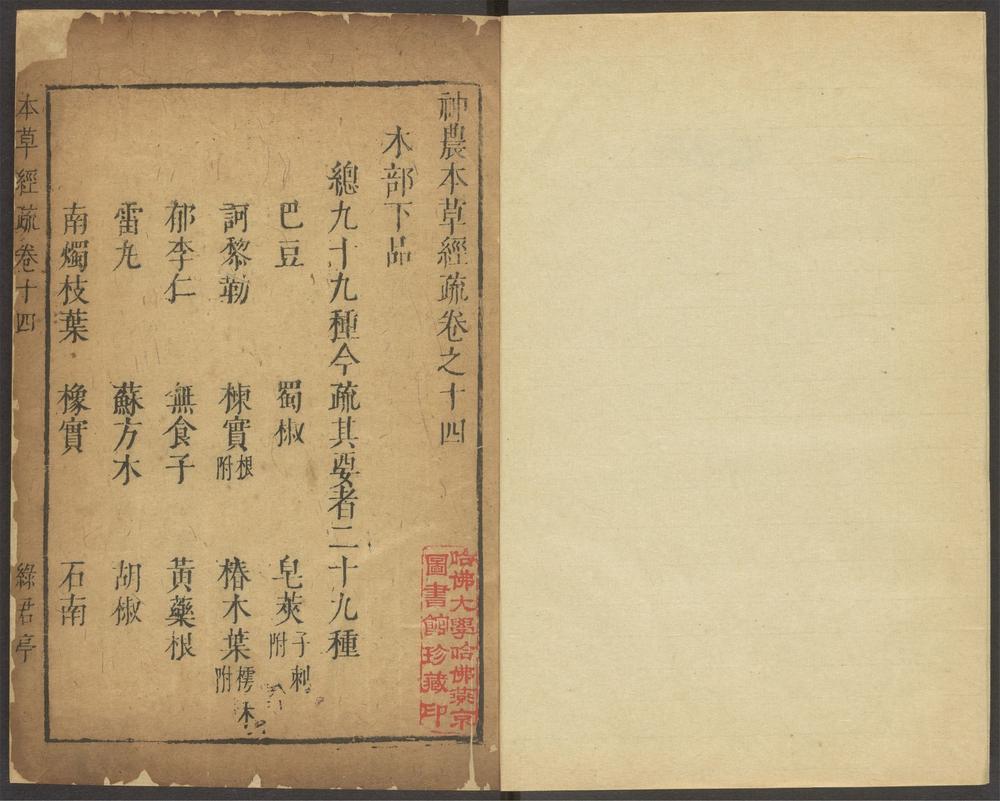 神農本草經疏卷之十四
木部下品
總九十九種今疏其要者二十九種
巴豆 蜀椒 皂莢子刺附
訶黎勒 楝實根附 椿木葉樗木附
郁李仁 無食子 黃藥根
雷丸 蘇方木 胡椒
南燭枝葉 橡實 石南
本草經疏卷十四 綠君亭
哈佛大學哈佛燕京
圖書館珍藏印